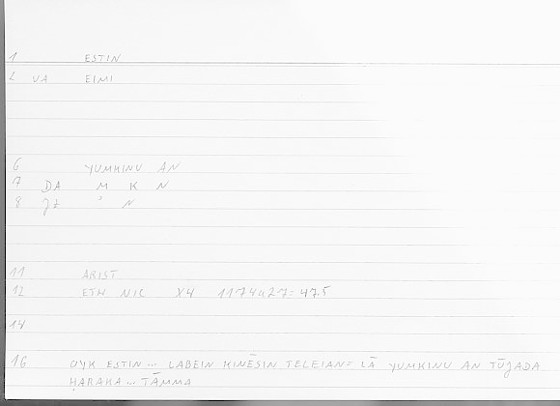 1 ESTIN
2 VA EIMI
6 YUMKINU AN
7 DA M K N
8 J+ ʾ N
11 ARIST
12 ETH NIC X4 1174a27: 475
14
16 OYK ESTIN ... LABEIN KINĒSIN TELEIAN: LĀ YUMKINU AN TŪJADA
ḤARAKA ... TĀMMA